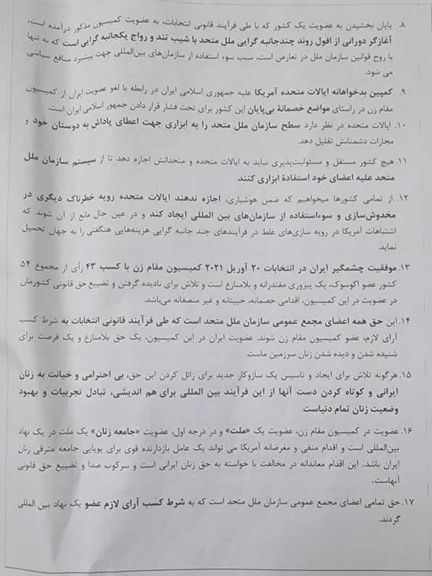 ۸. پایان بخشیدن به عضویت یک کشور که با طی فرآیند قانونی انتخابات، به عضویت کمیسیون مذکور درآمده است،
آغازگر دورانی از افول روند چندجانبه گرایی ملل متحد با شیب تند و رواج یکجانبه گرایی است که نه تنها
با روح قوانین سازمان ملل در تعارض است، سبب سوء استفاده از سازمان‌های بین‌المللی جهت پیشبرد منافع سیاسی
می شود.
۹. کمپین بدخواهانه ایالات متحده آمریکا علیه جمهوری اسلامی ایران در رابطه با لغو عضویت ایران از کمیسیون
مقام زن در راستای مواضع خصمانهٔ بی‌پایان این کشور برای تحت فشار قرار دادن جمهوری اسلامی ایران است.
۱۰. ایالات متحده در نظر دارد سطح سازمان ملل متحد را به ابزاری جهت اعطای پاداش به دوستان خود و
مجازات دشمنانش تقلیل دهد.
۱۱. هیچ کشور مستقل و مسئولیت‌پذیری نباید به ایالات متحده و متحدانش اجازه دهد تا از سیستم سازمان ملل
متحد علیه اعضای خود استفادهٔ ابزاری کنند.
۱۲. از تمامی کشورها میخواهیم که ضمن هوشیاری، اجازه ندهند ایالات متحده رویه خطرناک دیگری در
مخدوش‌سازی و سوءاستفاده از سازمان‌های بین المللی ایجاد کند و در عین حال مانع از آن شوند که
اشتباهات آمریکا در رویه سازی‌های غلط در فرآیندهای چند جانبه گرایی هزینه‌هایی هنگفتی را به جهان تحمیل
نماید.
۱۳. موفقیت چشمگیر ایران در انتخابات ۲۰ آوریل ۲۰۲۱ کمیسیون مقام زن با کسب ۴۳ رأی از مجموع ۵۴
کشور عضو اکوسوک، یک پیروزی مقتدرانه و بلامنازع است و تلاش برای نادیده گرفتن و تضییع حق قانونی کشورمان
در عضویت در این کمیسیون، اقدامی خصمانه، خبیثانه و غیر منصفانه می‌باشد.
۱۴. این حق همه اعضای مجمع عمومی سازمان ملل متحد است که طی فرآیند قانونی انتخابات به شرط کسب
آرای لازم، عضو کمیسیون مقام زن شوند. عضویت ایران در این کمیسیون، یک حق بلامنازع و یک فرصت برای
شنیده شدن و دیده شدن زنان سرزمین ماست.
۱۵. هرگونه تلاش برای ایجاد و تاسیس یک سازوکار جدید برای زائل کردن این حق، بی احترامی و خیانت به زنان
ایرانی و کوتاه کردن دست آنها از این فرآیند بین المللی برای هم اندیشی، تبادل تجربیات و بهبود
وضعیت زنان تمام دنیاست.
۱۶. عضویت در کمیسیون مقام زن، عضویت یک «ملت» و در درجه اول، عضویت «جامعه زنان» یک ملت در یک نهاد
بین‌المللی است و اقدام منفی و مغرضانه آمریکا می تواند یک عامل بازدارنده قوی برای پویایی جامعه مترقی زنان
ایران باشد. این اقدام معاندانه در مخالفت با خواسته به حق زنان ایرانی است و سرکوب صدا و تضییع حق قانونی
آنهاست.
۱۷. حق تمامی اعضای مجمع عمومی سازمان ملل متحد است که به شرط کسب آرای لازم عضو یک نهاد بین المللی
گردند.